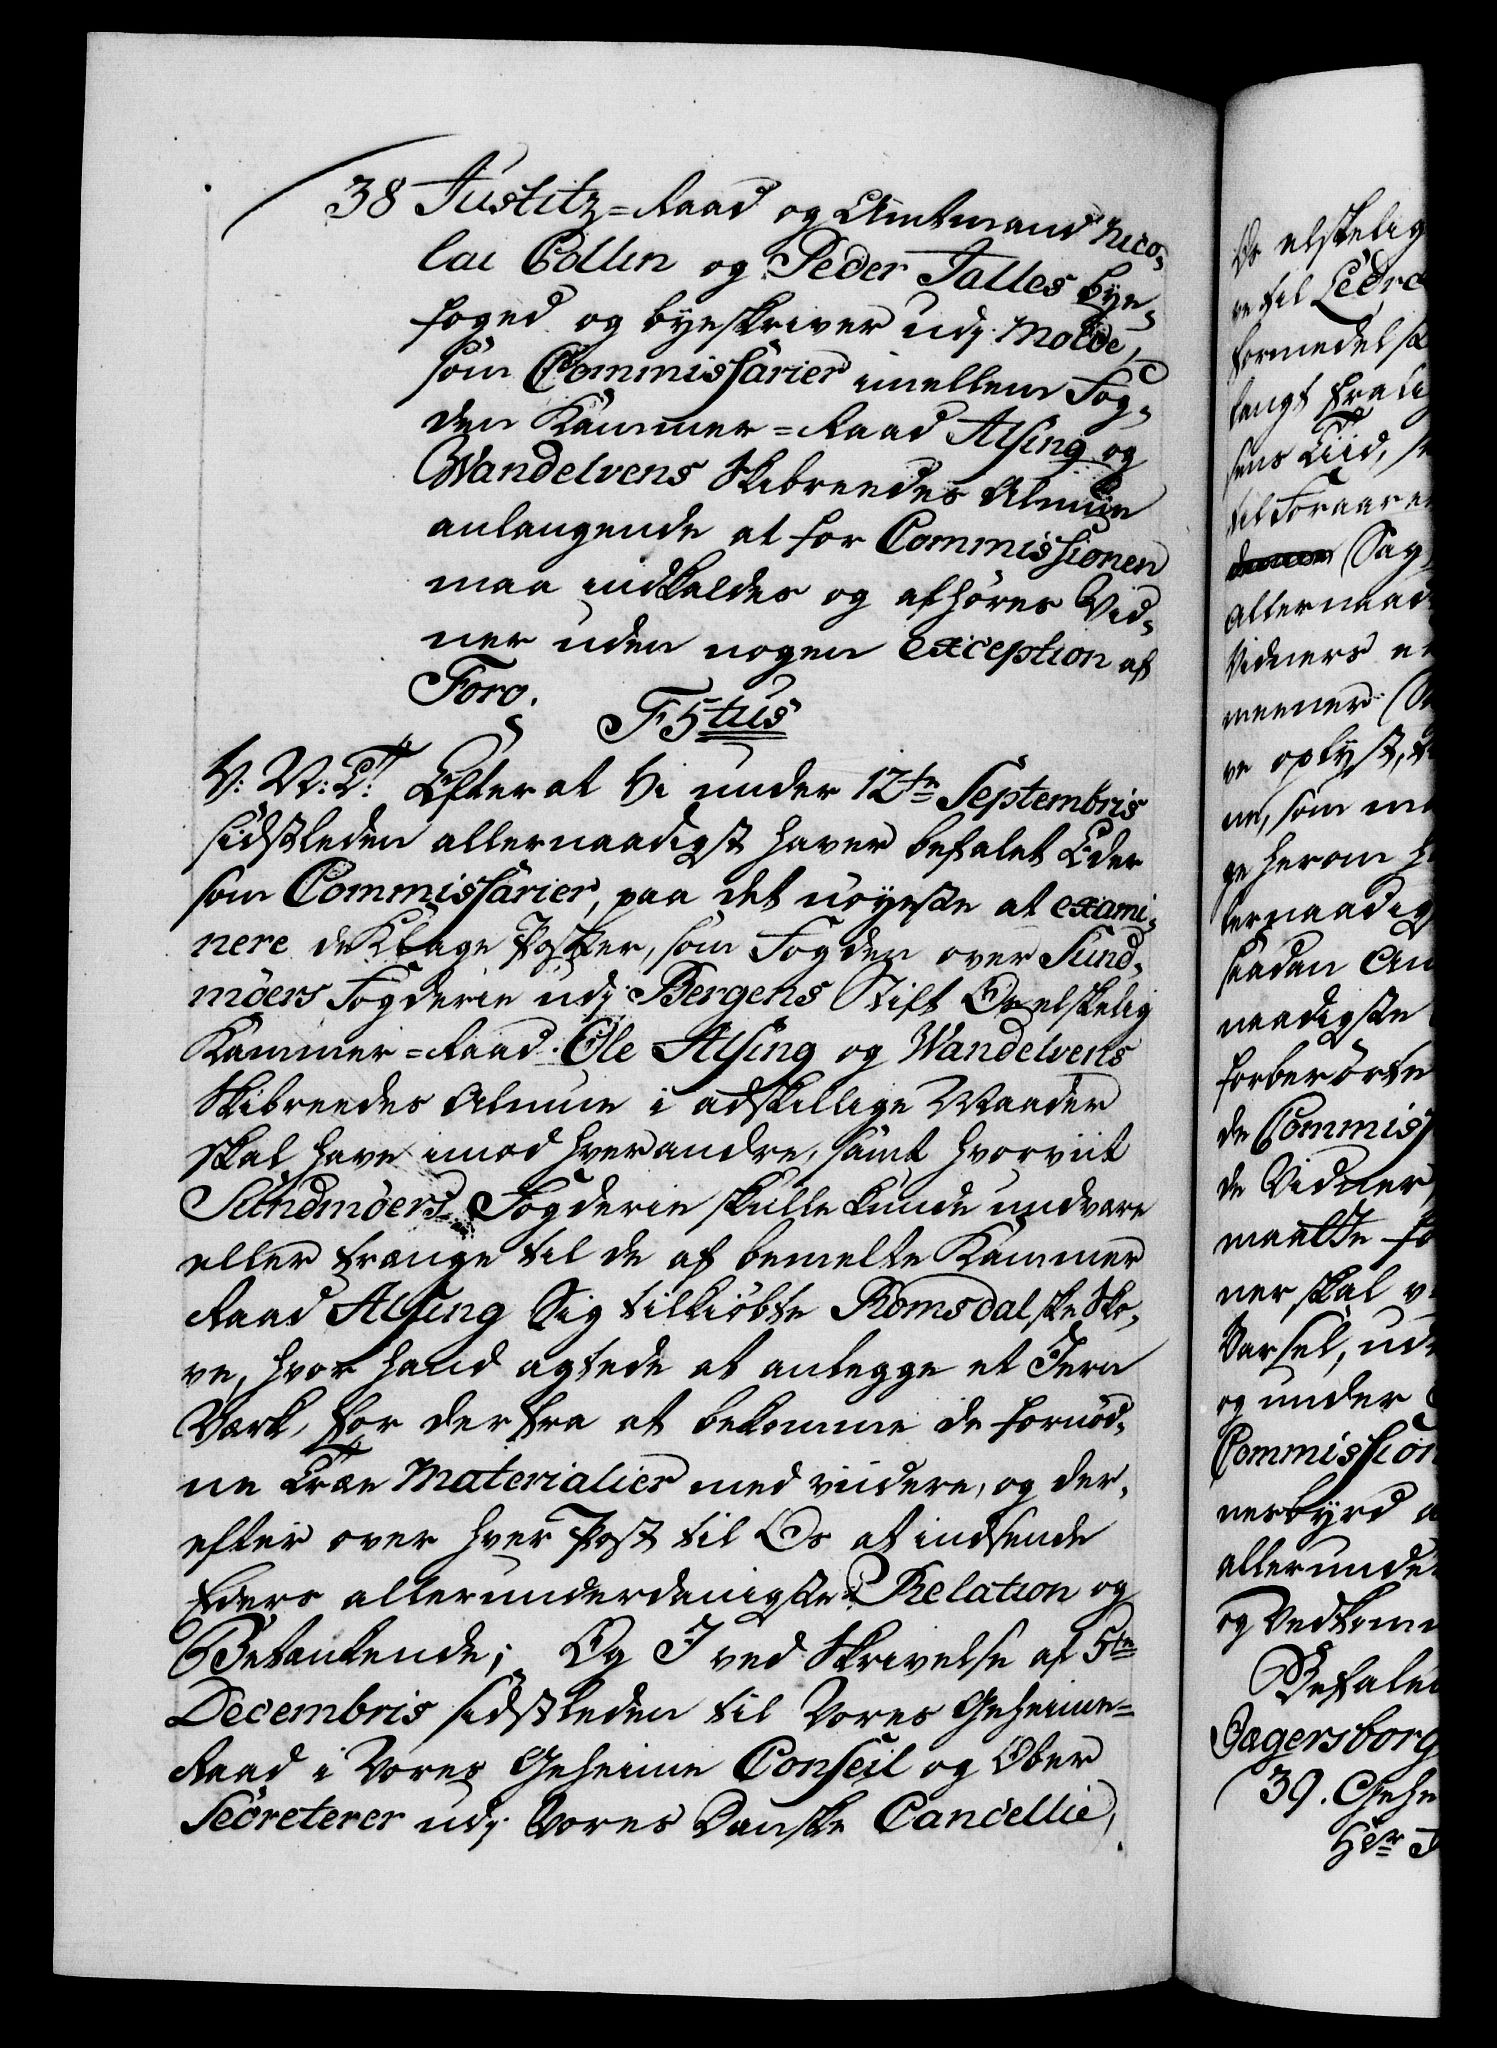 38 Justitz=Raad og Amtmand Nico-
lai Collin og Peder Falles bye-
foged og byeskriver udj Molde,
som Commissarier imellem Fog-
den Kammer=Raad Alsing og
Wandelvens Skibreedes Almue
anlangende at for Commissionen
maa indkaldes og afhøres Vid-
ner uden nogen exception af
Foro.
F 5tus
V: V: T: Efter at Vi under 12te Septembris
sidstleden allernaadigst haver befalet Eder
som Commissarier, paa det nøyeste at exami-
nere de Klage Poster, som Fogden over Sund-
möers Fogderie udj Bergens Stift Os elskelig
Kammer=Raad Ole Alsing og Wandelvens
Skibreedes Almue i adskillige Maader
skal have imod hverandre, samt hvorviit
Sundmöers Fogderie skulle kunde undvære
eller trænge til de af bemelte Kammer
Raad Alsing Sig tilkiøbte Romsdalske Sko-
ve, hvor hand agtede at anlegge et Jern
Værk, for derfra at bekomme de fornød-
ne Træe Materialier med viidere, og der-
efter over hver Post til Os at indsende
Eders allerunderdanigste Relation og
Betænkende; Og I ved Skrivelse af 5te
Decembris sidstleden til Vores Geheime-
Raad i Vores Geheime Conseil og Ober
Secreterer udj Vores Danske Cancellie,
Os elskelig
ve til Ledre
formedelst
langt fra
sens Tiid,
til Foraaret
Sag
allernaad
Vidners
meener
ve oplyst,
ne, som
ge herom
lernaadig
saadan An
naadigste
forberörte
de Commiss
de Vidner
maatte
ner skal
Varsel, ud
og under
Commission
nesbyrd
allerunde
og Vedkom
Befalen
Jagersborg
39. Gehe
Hr